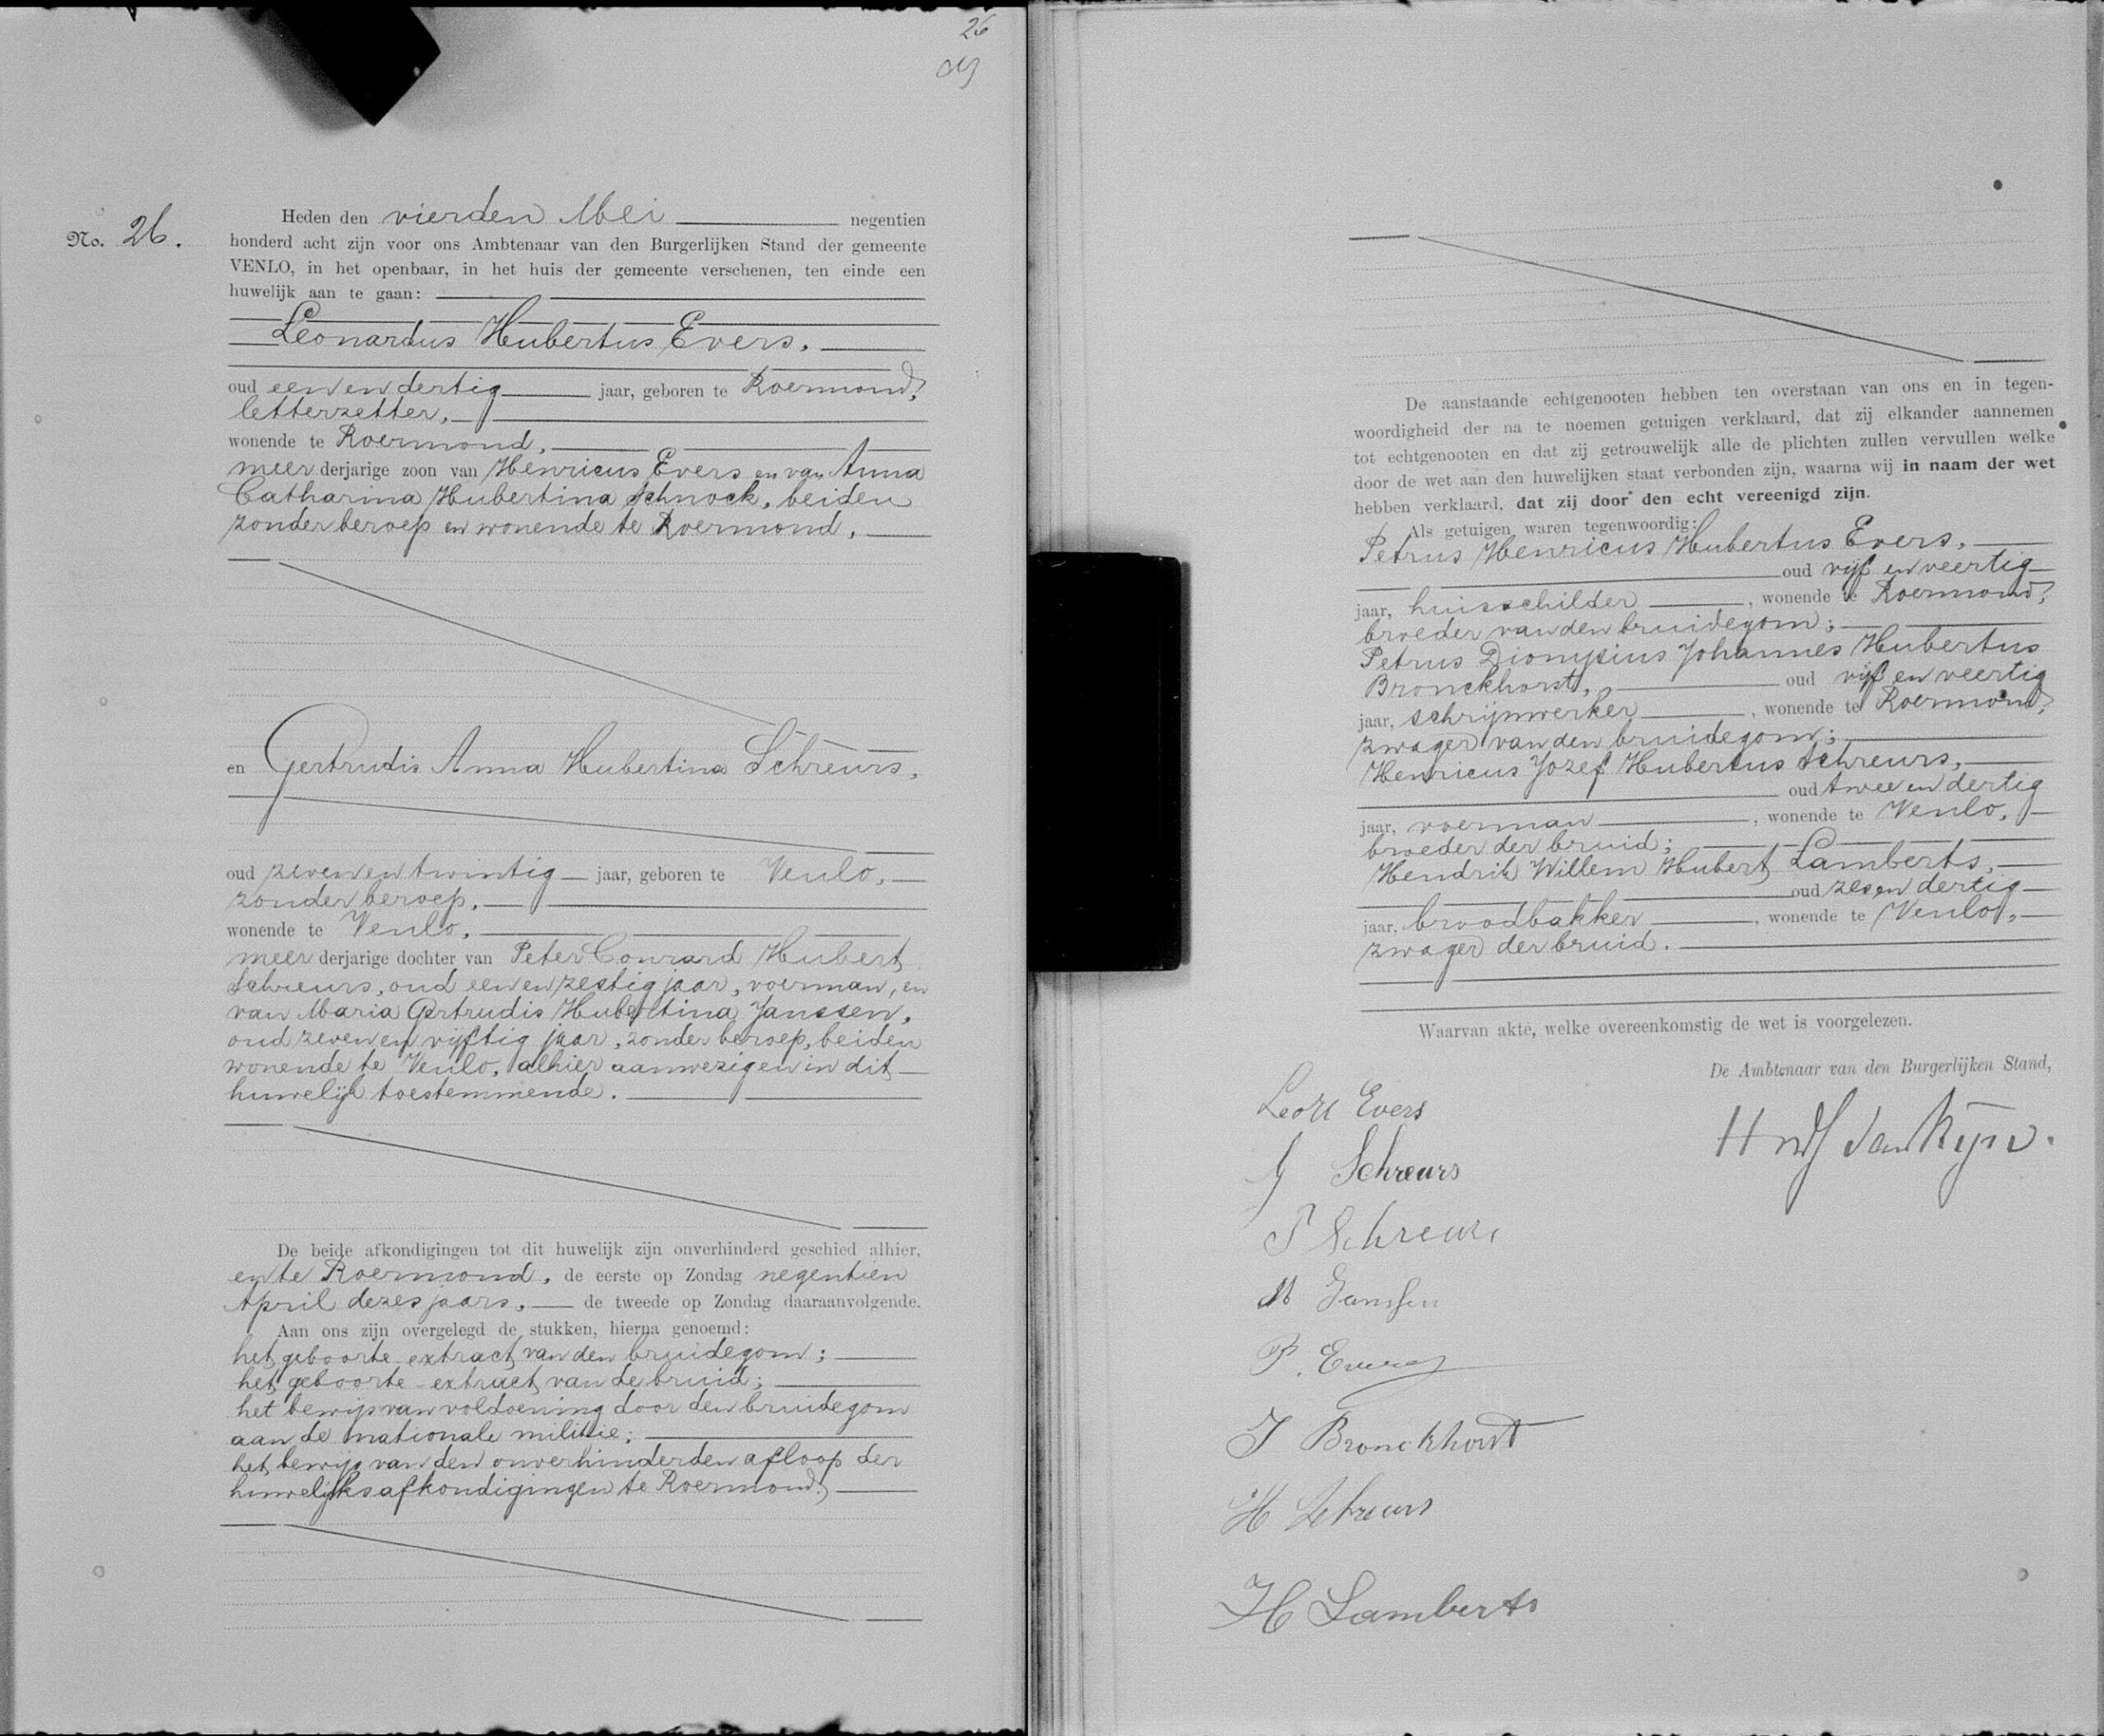 26
No. 26.
Heden den vierden Mei negentien
honderd acht zijn voor ons Ambtenaar van den Burgerlijken Stand der gemeente
VENLO, in het openbaar, in het huis der gemeente verschenen, ten einde een
huwelijk aan te gaan:
Leonardus Hubertus Evers,
oud een en dertig jaar, geboren te Roermond,
letterzetter,
wonende te Roermond,
meerderjarige zoon van Henricus Evers en van Anna
Catharina Hubertina Schnock, beiden
zonder beroep en wonende te Roermond,
en Gertrudis Anna Hubertina Schreurs,
oud zeven en twintig jaar, geboren te Venlo,
zonder beroep,
wonende te Venlo,
meerderjarige dochter van Peter Conrard Hubert
Schreurs, oud een en zestig jaar, voerman, en
van Maria Gertrudis Hubertina Janssen,
oud zeven en vijftig jaar, zonder beroep, beiden
wonende te Venlo, alhier aanwezig en in dit
huwelijk toestemmende.
De beide afkondigingen tot dit huwelijk zijn onverhinderd geschied alhier,
en te Roermond, de eerste op Zondag negentien
April dezes jaars, de tweede op Zondag daaraanvolgende.
Aan ons zijn overgelegd de stukken, hierna genoemd:
het geboorte extract van den bruidegom;
het geboorte-extract van de bruid;
het bewijs van voldoening door den bruidegom
aan de nationale militie;
het bewijs van den onverhinderden afloop der
huwelijksafkondigingen te Roermond.
De aanstaande echtgenooten hebben ten overstaan van ons en in tegen-
woordigheid der na te noemen getuigen verklaard, dat zij elkander aannemen
tot echtgenooten en dat zij getrouwelijk alle de plichten zullen vervullen welke
door de wet aan den huwelijken staat verbonden zijn, waarna wij in naam der wet
hebben verklaard, dat zij door den echt vereenigd zijn.
Als getuigen waren tegenwoordig:
Petrus Henricus Hubertus Evers,
oud vijf en veertig
jaar, huisschilder, wonende te Roermond,
broeder van den bruidegom;
Petrus Dionysius Johannes Hubertus
Bronckhorst, oud vijf en veertig
jaar, schrijnwerker, wonende te Roermond,
zwager van den bruidegom;
Henricus Jozef Hubertus Schreurs,
oud twee en dertig
jaar, voerman, wonende te Venlo,
broeder der bruid;
Hendrik Willem Hubert Lamberts,
oud zes en dertig
jaar, broodbakker, wonende te Venlo,
zwager der bruid.
Waarvan akte, welke overeenkomstig de wet is voorgelezen.
De Ambtenaar van den Burgerlijken Stand,
Evers
G Schreurs
P Schreurs
M Janssen
P. Evers
J Bronckhorst
H Schreurs
H Lamberts
van Rijn.